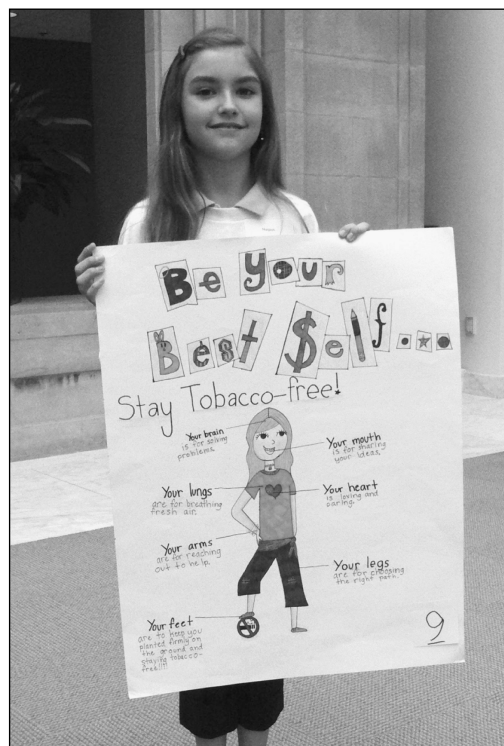 Be Your
Best $elf...
Stay Tobacco-free!
Your brain
is for solving
problems.
Your mouth
is for sharing
your ideas.
Your lungs
are for breathing
fresh air.
Your heart
is loving and
caring.
Your arms
are for reaching
out to help.
Your legs
are for choosing
the right path.
Your feet
are to keep you
planted firmly on
the ground and
staying tobacco-
free!!!!
9